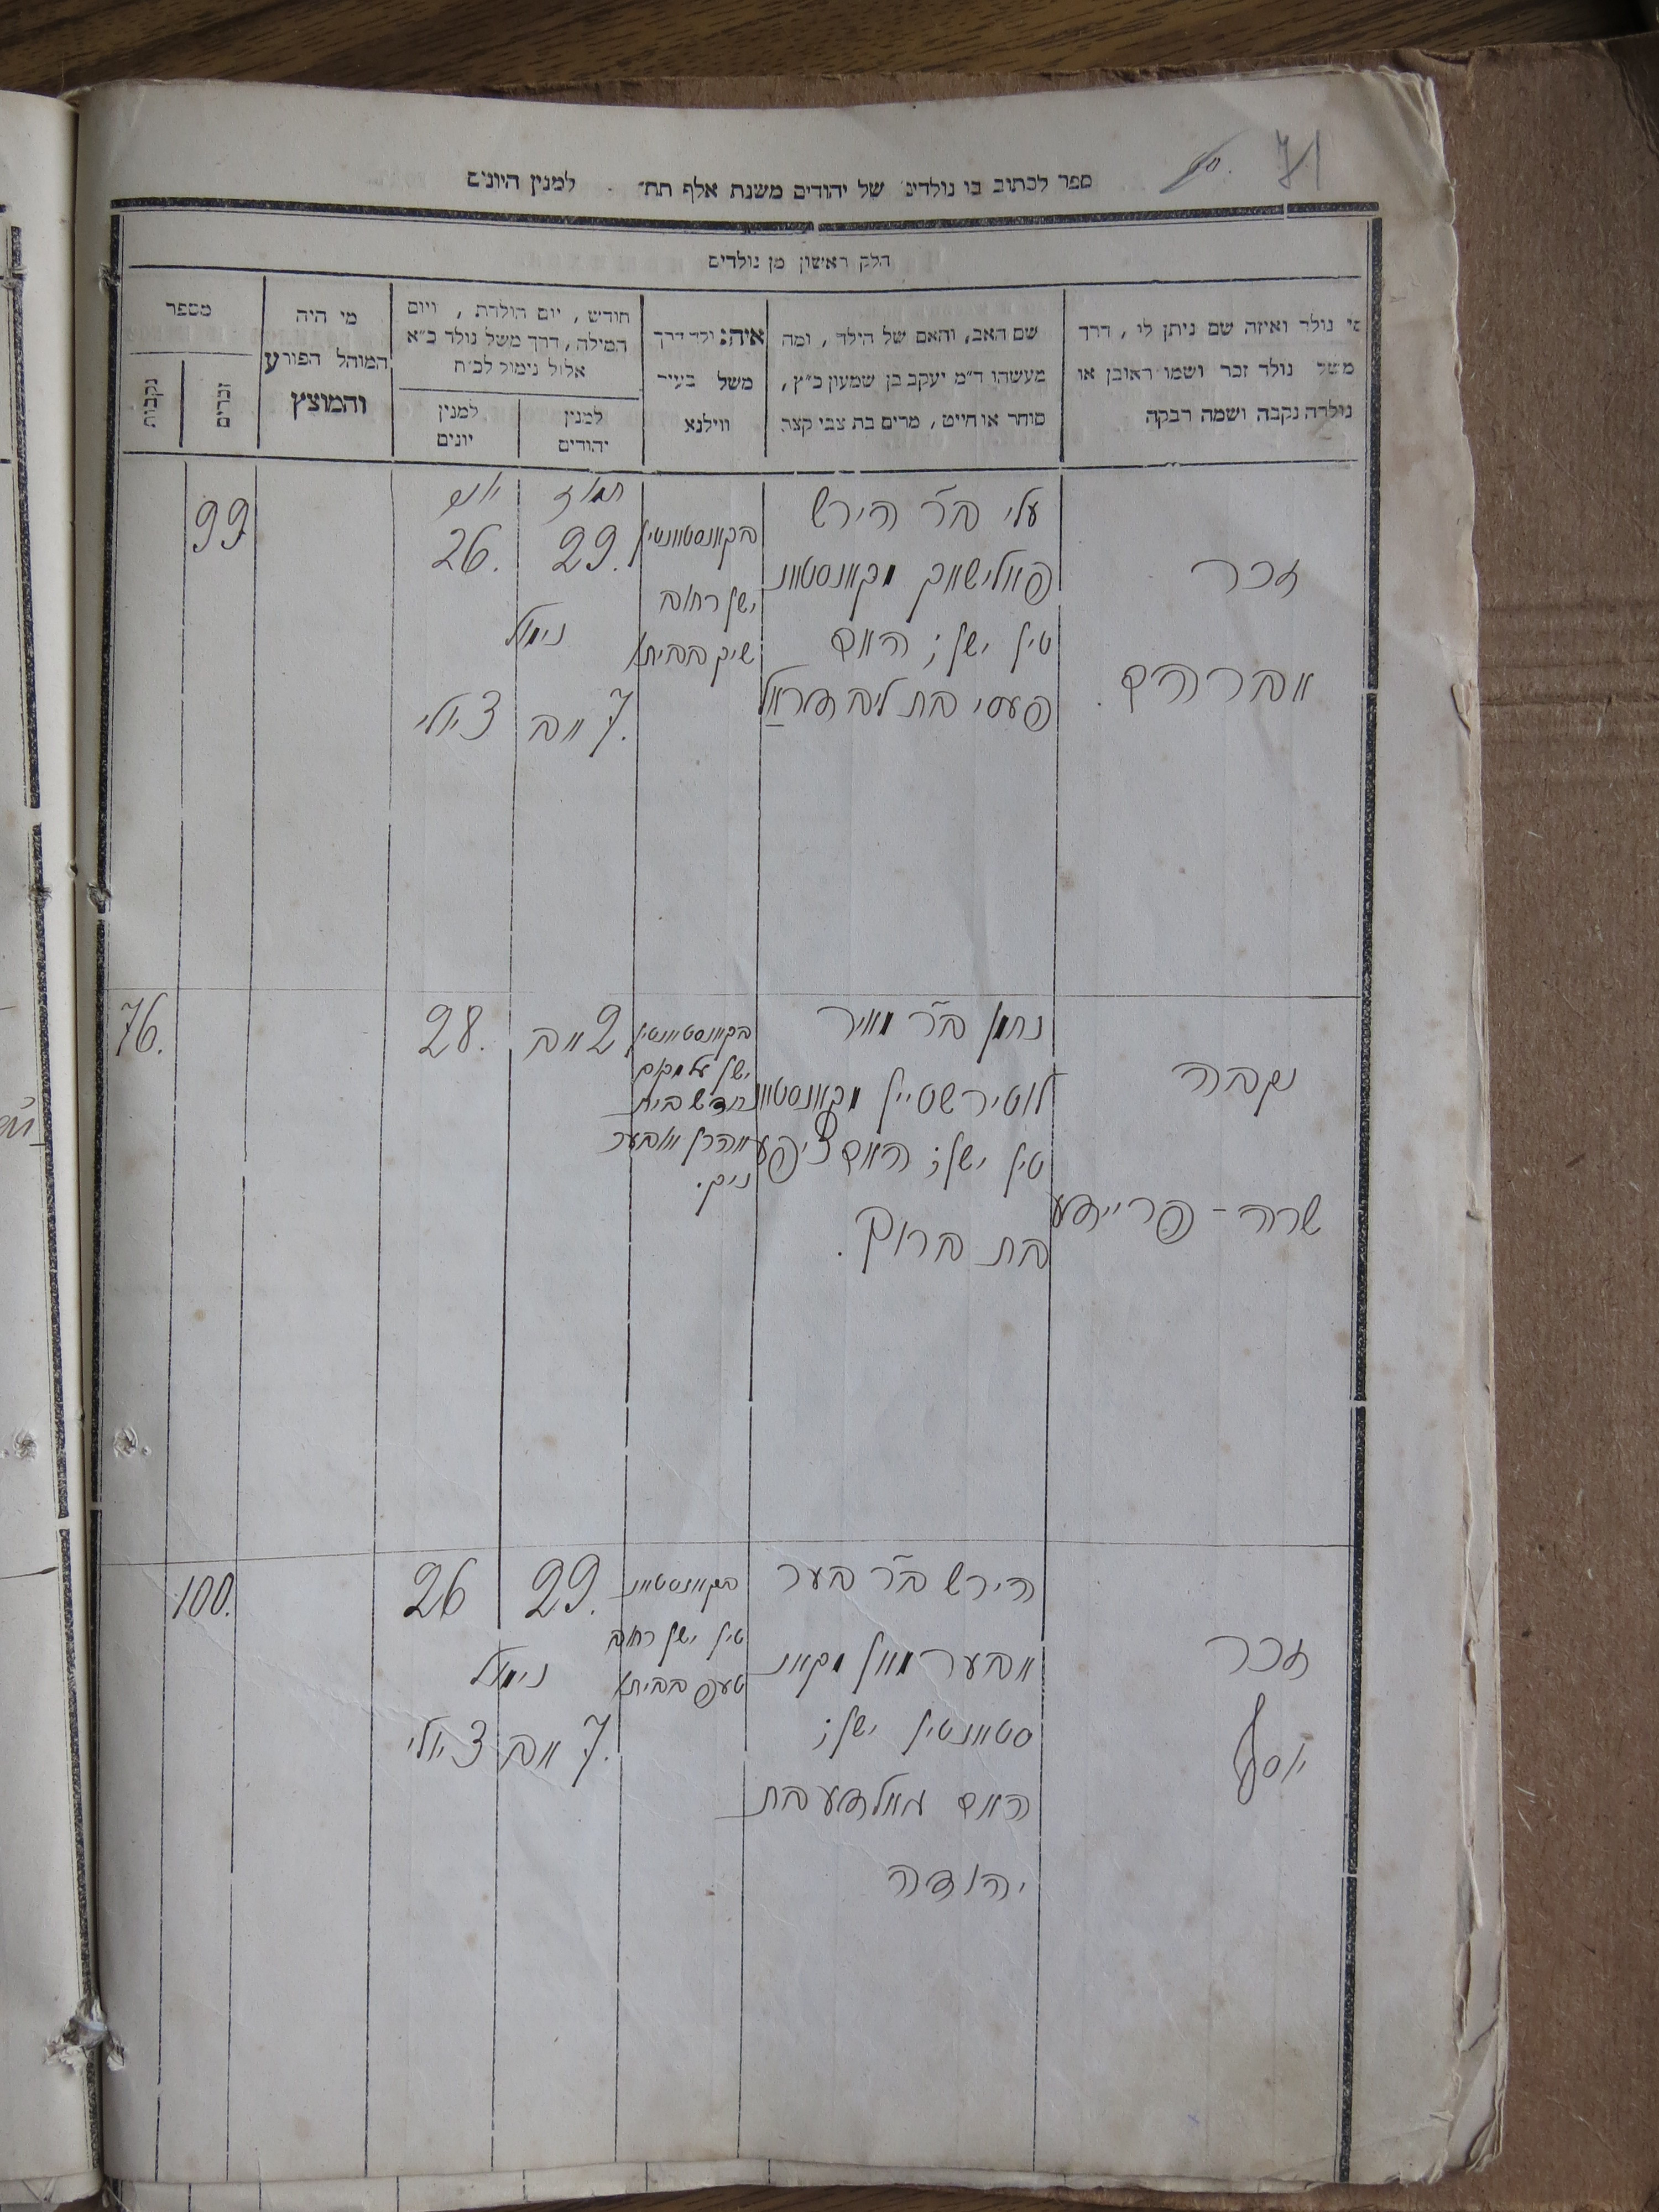 71
ספר לכתוב בו נולדים של יהודים משנת אלף תת״ למנין היונים
חלק ראשון מן נולדים
מי נולד ואיזה שם ניתן לו, דרך
משל נולד זכר ושמו ראובן או
נולדה נקבה ושמה רבקה
שם האב, והאם של הילד, ומה
מעשהו ד״מ יעקב בן שמעון כ״ץ,
סוחר או חייט, מרים בת צבי קצב
איה: ילד דרך
משל בעיר
ווילנא
חודש, יום הולדת, ויום
המילה, דרך משל נולד כ״א
אלול נימול לכ״ח
למנין
יהודים
למנין
יונים
מי היה
המוהל הפורע
והמוצץ
מספר
זכרים
נקבות
זכר
אברהם.
עלי ב״ר הירש
פאלישוק מקאנסטאנ
טין ישן; האם
פעסי בת ליב
בקאנסטאנטין
ישן רחוב
שיק בביתו
תמוז
29.
נימול
7. אב
יוני
26.
3 יולי
99
נקבה
שרה - פריידע
נחמן ב״ר מאיר
מקאנסטאנ
טין ישן; האם ציפע
בת ברוך.
בקאנסטאנטין
ישן על מקום
חדש בית
אהרן
2 אב
28.
76.
זכר
יוסף
הירש ב״ר בער
אבערמאן מקאנ
סטאנטין ישן;
האם גאלדע בת
יהודה
בקאנסטאנ
טין ישן רחוב
בביתו
29.
נימול
7. אב
26
3 יולי
100.